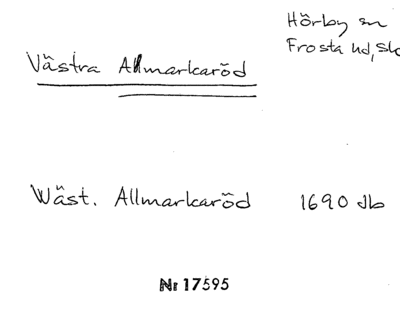 Hörby sn
Frosta hd, Sk
Västra Allmarkaröd
Wäst. Allmarkaröd 1690 db
Nr 17595